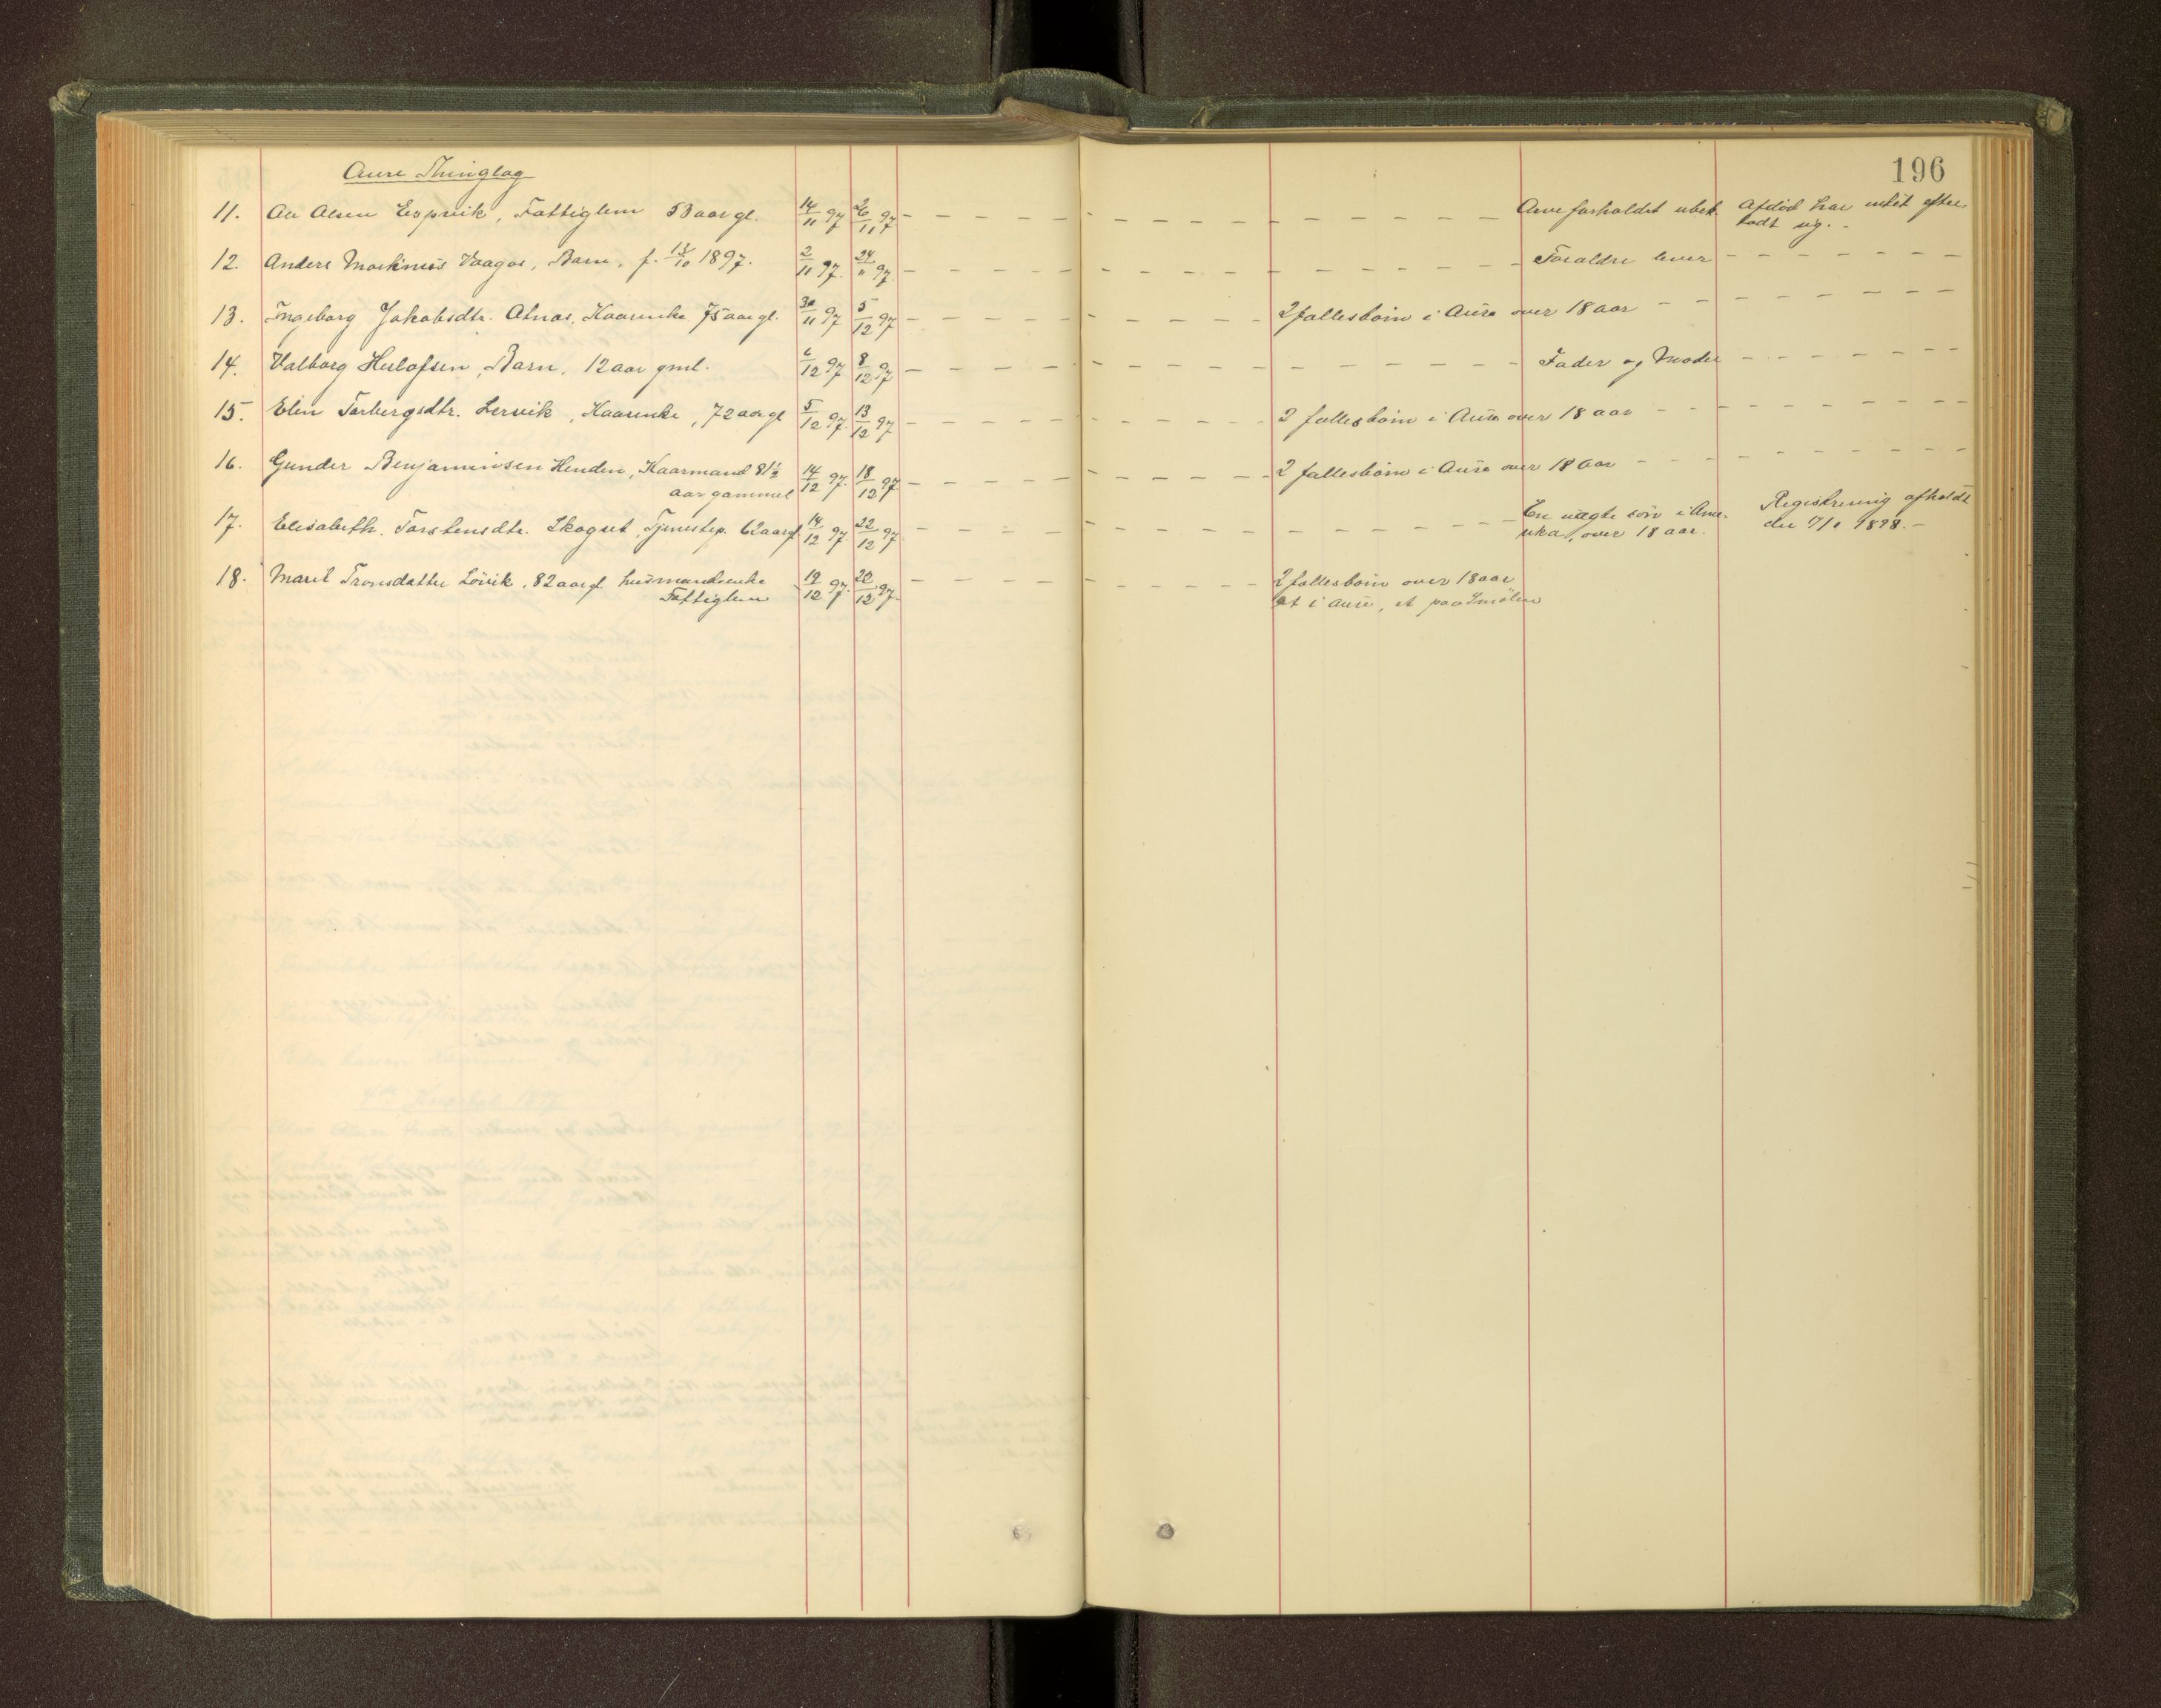 196
Aure Thinglag
11. Aa Olsen Espvik, Fattiglem 53 aar gl. 14/11 97 26/11 97 Arveforholdet ubek. Afdød har intet efter-
ladt sig. -
12. Anders Markinus Vaagos, Barn, f. 13/10 1897. 2/11 97. 24/11 97. Forældre lever
13. Ingeborg Jakobsdtr. Otnæs, Kaarenke 75 aar gl. 30/11 97 5/12 97 2 fællesbörn i Aure over 18 aar
14. Valborg Herlofsen, Barn, 12 aar gml. 6/12 97 8/12 97 Fader og Moder
15. Elen Torbergsdtr. Lervik, Kaarenke, 72 aar gl 5/12 97. 13/12 97 2 fællesbörn i Aure over 18 aar
16. Gunder Benjaminsen Henden, Kaarmand 81½
aar gammel 14/12 97. 18/12 97. 2 fællesbörn i Aure over 18 aar
17. Elisabeth. Torstensdtr. Skogset, Tjenestep. 62 aar gl. 14/12 97 22/12 97 En uægte sön i Ame-
rika, over 18 aar. Registrering afholdt
den 7/1 1898. -
18. Marit Tronsdatter Lövik, 82 aar gl husmandsenke
Fattiglem 19/12 97. 22/12 97. 2 fællesbörn over 18 aar
et i Aure, et paa Smölen